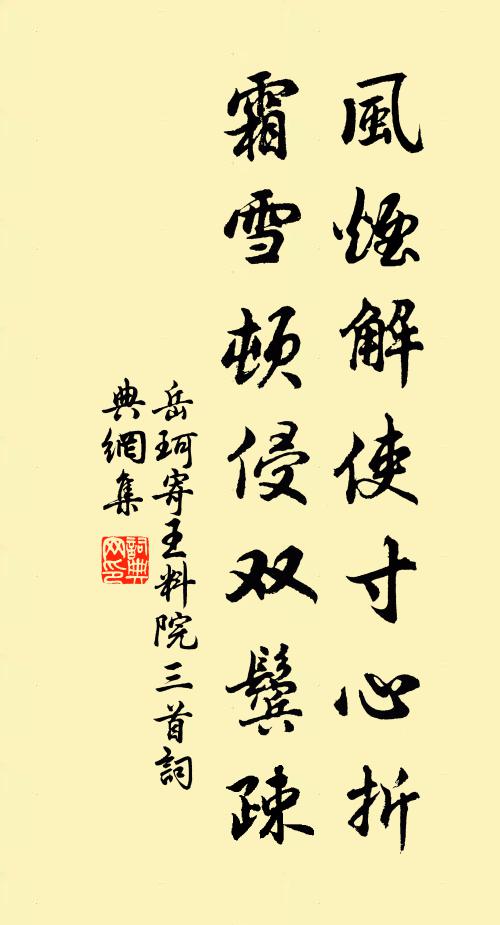 風煙解使寸心折
霜雪頓侵双鬢疎
岳珂寄王料院三首詞
典網集
詞典
网印